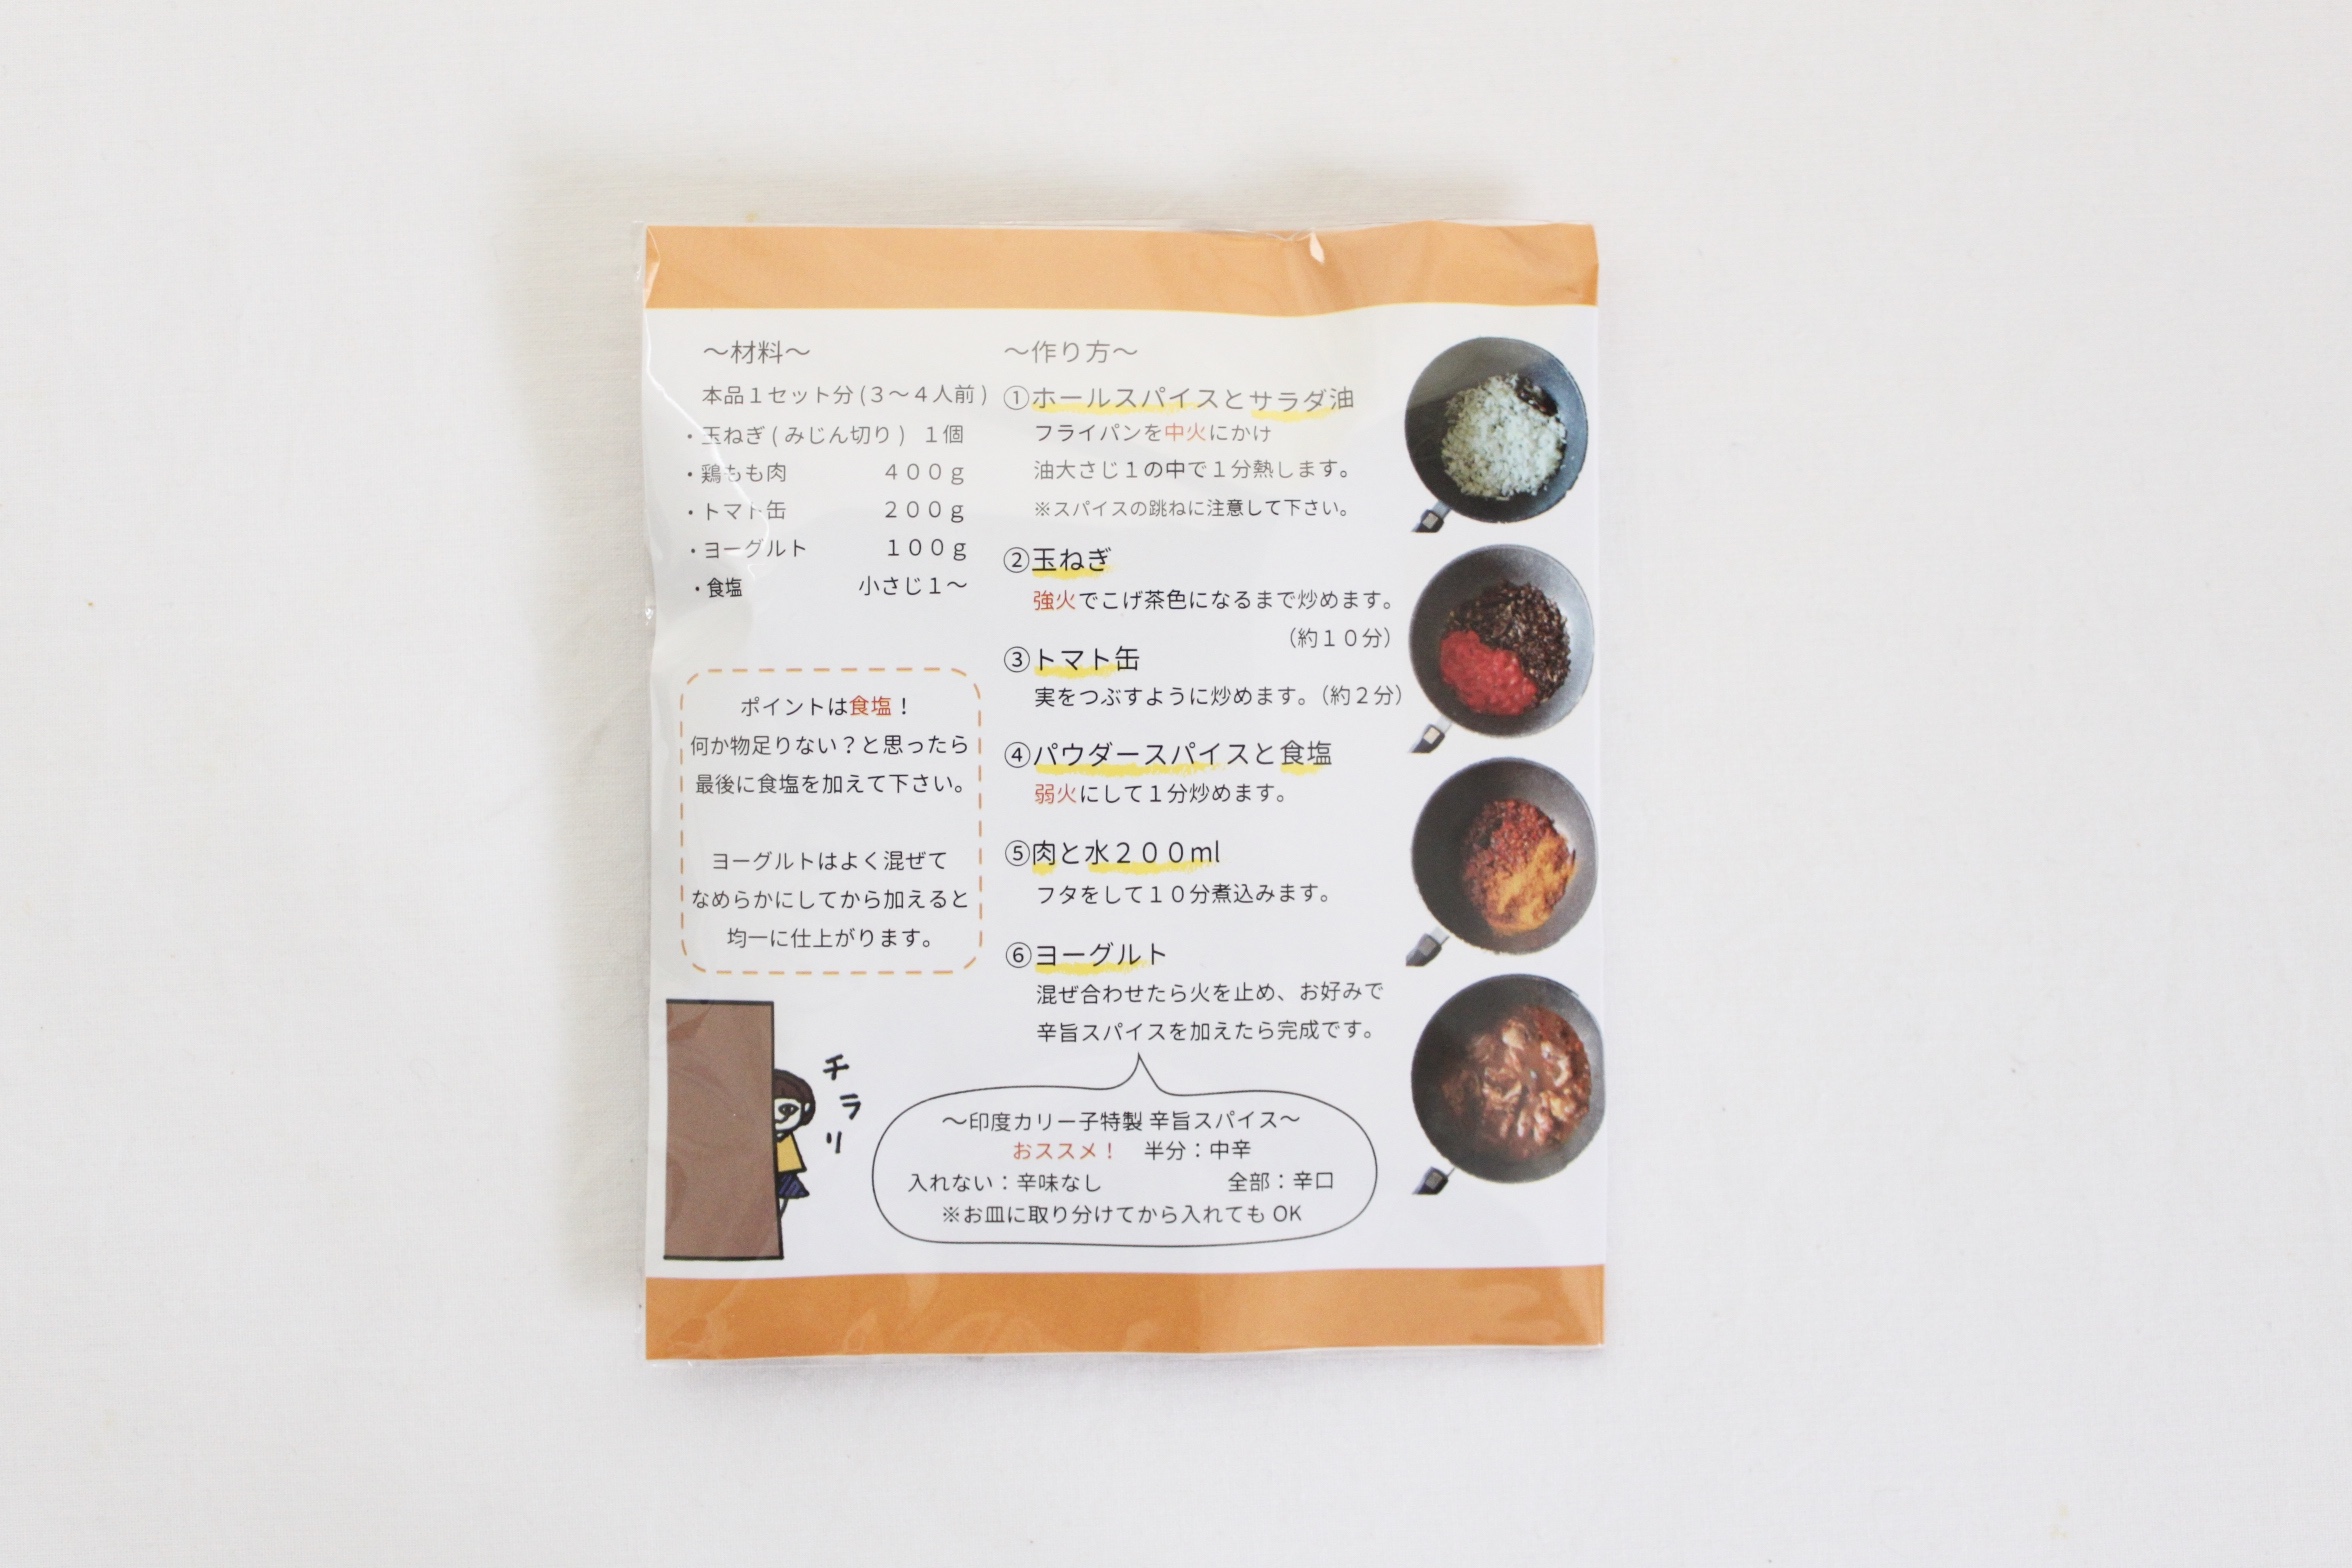 ～材料～
本品１セット分(３～４人前)
・玉ねぎ(みじん切り) １個
・鶏もも肉 ４００ｇ
・トマト缶 ２００ｇ
・ヨーグルト １００ｇ
・食塩 小さじ１～
ポイントは食塩！
何か物足りない？と思ったら
最後に食塩を加えて下さい。
ヨーグルトはよく混ぜて
なめらかにしてから加えると
均一に仕上がります。
チラリ
～作り方～
①ホールスパイスとサラダ油
フライパンを中火にかけ
油大さじ１の中で１分熱します。
※スパイスの跳ねに注意して下さい。
②玉ねぎ
強火でこげ茶色になるまで炒めます。
（約１０分）
③トマト缶
実をつぶすように炒めます。（約２分）
④パウダースパイスと食塩
弱火にして１分炒めます。
⑤肉と水２００ml
フタをして１０分煮込みます。
⑥ヨーグルト
混ぜ合わせたら火を止め、お好みで
辛旨スパイスを加えたら完成です。
～印度カリー子特製 辛旨スパイス～
おススメ！ 半分：中辛
入れない：辛味なし 全部：辛口
※お皿に取り分けてから入れても OK